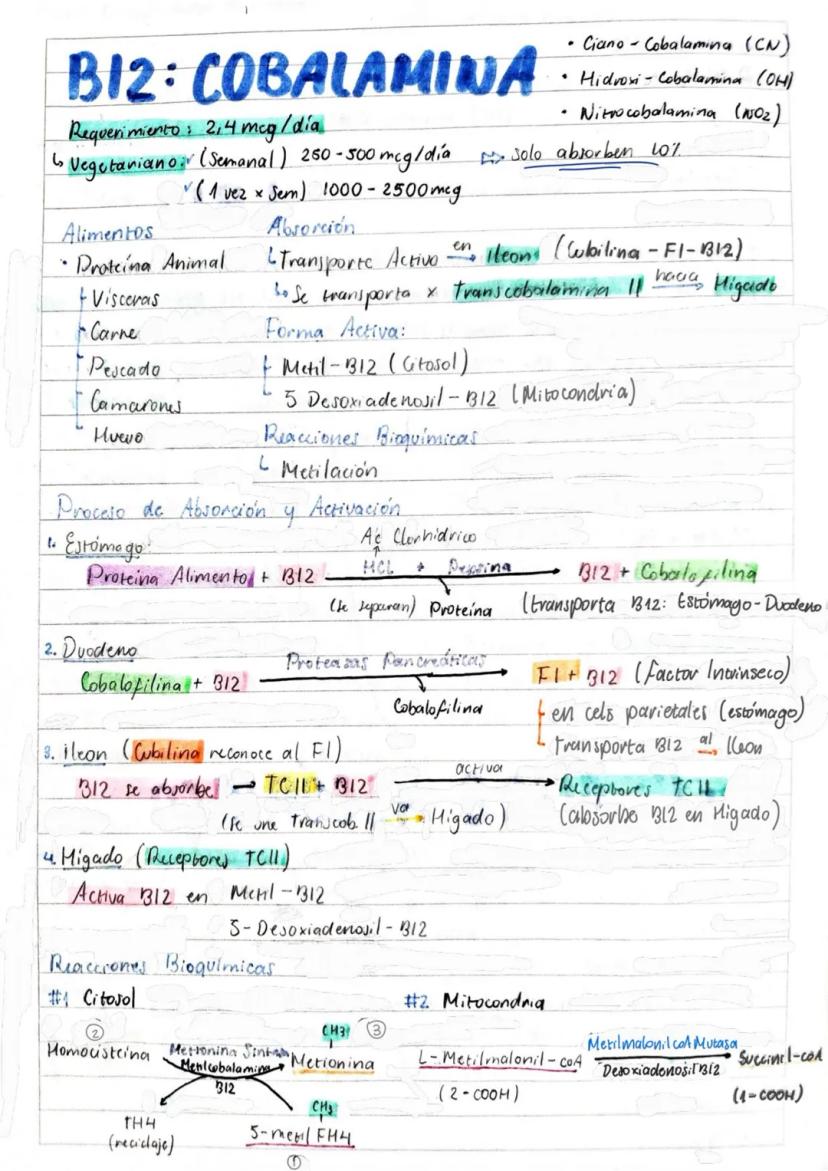 B12: COBALAMINA
• Ciano-Cobalamina (CN)
• Hidroxi-Cobalamina (OH)
• Nitrocobalamina (NO2)
Requerimiento: 2,4 mcg/día
↳ Vegetariano: ✓ (Semanal) 250-500 mcg/día ⇨ solo absorben 10%
✓ (1 vez x sem) 1000-2500mcg
Alimentos
• Proteína Animal
Vísceras
Carne
Pescado
Camarones
Huevo
Absorción
↳ Transporte Activo en → Ileon (Cubilina-FI-B12)
↳ Se transporta x Transcobalamina II hacia → Hígado
Forma Activa:
Metil-B12 (Citosol)
5 Desoxiadenosil-B12 (Mitocondria)
Reacciones Bioquímicas
Metilación
Proceso de Absorción y Activación
1. Estómago:
Ac Clorhídrico
↑
HCL + Pepsina
Proteína Alimento + B12 → B12 + Cobalofilina
(se separan) Proteína (transporta B12: Estómago-Duodeno
2. Duodeno
Proteasas Pancreáticas
Cobalofilina + B12 → FI + B12 (Factor Intrinseco)
Cobalofilina
en cels parietales (estómago)
transporta B12 al → Ileon
3. Ileon (Cubilina reconoce al FI)
B12 se absorbe → TCII + B12 activa → Receptores TCII
(se une transcob. II va → Hígado) (absorbe B12 en Hígado)
4. Hígado (Receptores TCII)
Activa B12 en Metil-B12
5-Desoxiadenosil-B12
Reacciones Bioquímicas
#1 Citosol
② CH3 ③
Homocisteína Metionina Sintasa → Metionina
Metilcobalamina
B12
CH3
FH4
(reciclaje)
5-metil FH4
①
#2 Mitocondria
Metilmalonil coA Mutasa
L-Metilmalonil-coA → Succinil-coA
Desoxiadenosil B12
(2-COOH) (1-COOH)